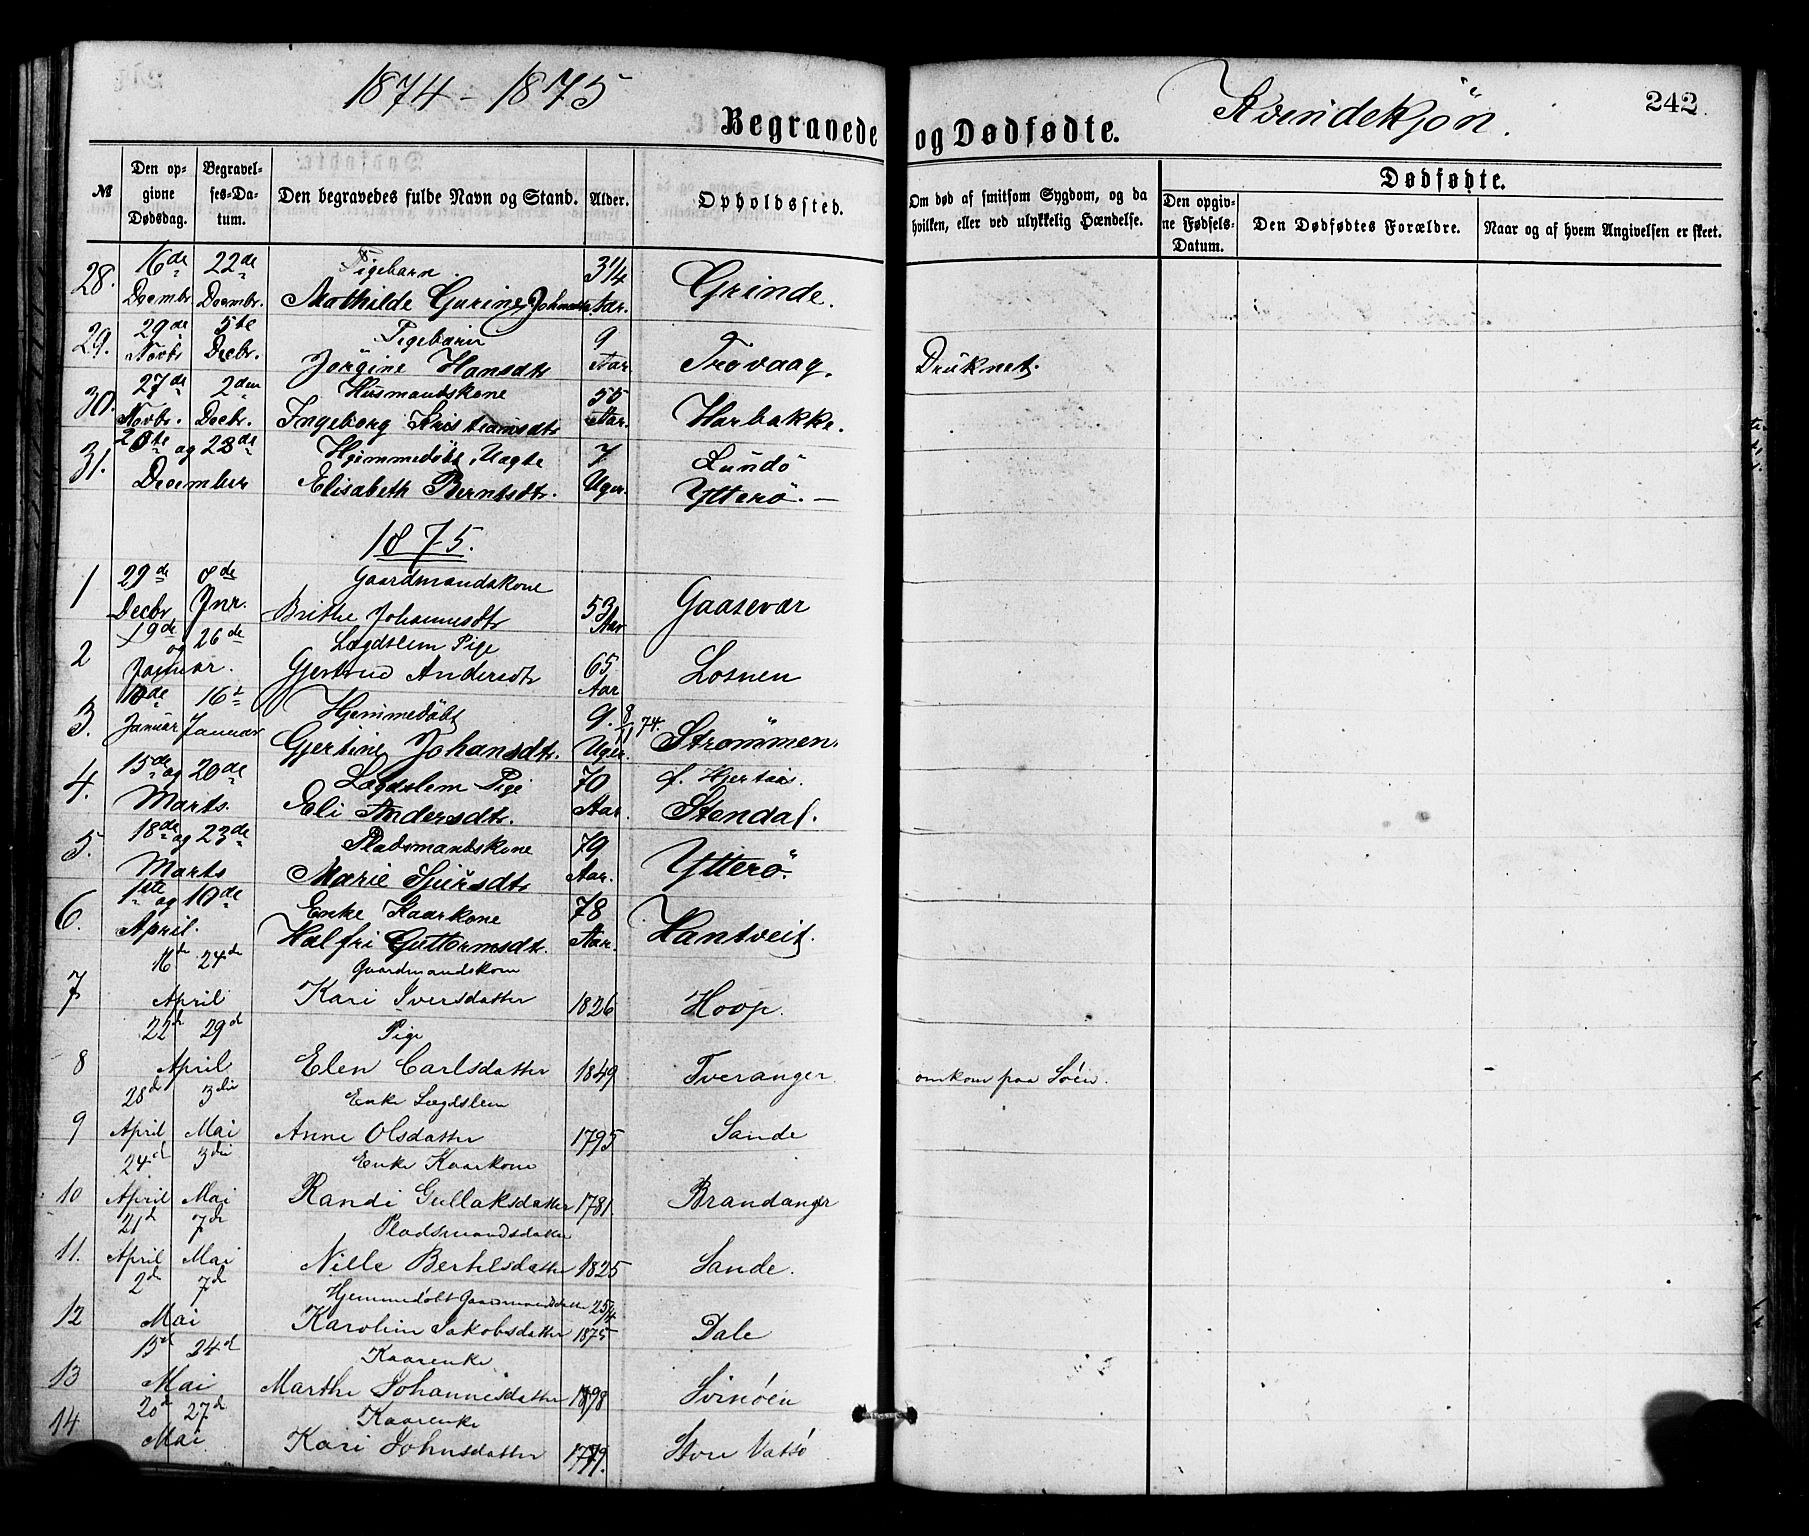 1874 - 1875
Begravede og Dødfødte.
Kvindekjön.
242
№
Den opgivne Dødsdag.
Begravelses-Datum.
Den begravedes fulde Navn og Stand.
Alder.
Opholdssted.
Om død af smitsom Sygdom, og da hvilken, eller ved ulykkelig Hændelse.
Dødfødte.
Den opgivne Fødsels-Datum.
Den Dødfødtes Forældre.
Naar og af hvem Angivelsen er skeet.
16de 22de Pigebarn. 3 1/4
28. Decembr. Decembr. Mathilde Gurine Aar. Grinde.
29de 5te Pigebarn 9
29. Novbr Decbr. Jörgine Hansdtr Aar Trovaag. Druknet.
27de 2den Husmandskone 55
30. Novbr. Decbr. Ingeborg Kristiansdtr Aar. Harbakke.
og 28de Hjemmedöbt 7 Lundö
31. December Elisabeth Berntsdtr. Uger. Ytterö. —
1875.
29de 8de Gaardmandskone
1 Decbr Jnr. Brithe Johannesdtr 53 Aar Gaasevær
19de og 26de Lægdslem Pige
2 Januar. Gjertrud Andersdtr 65 Aar Losnen
10de 16t Hjemmedöbt 9. 8/11 74.
3. Januar Januar Gjertine Johansdtr. Uger. Strömmen.
15de og 20de Lægdslem Pige 70
4. Marts. Eli Andersdtr. Aar. Stendal.
18de og 23de Pladsmandskone 79
5. Marts Marie Sjursdtr Aar. Ytterö.
1ste og 10de Enke Kaarkone 78
6. April. Halfri Guttormsdtr. Aar. Hantveit.
16de 24de Gaardmandskone
7 April Kari Iversdatter 1826 Hoop.
22d 29d Pige
8 April Elen Carlsdatter 1849 Tveranger omkom paa Söen.
28d 3die Enke Lægdslem
9 April Mai Anne Olsdatter 1795 Sande
24d 3die Enke Kaarkone
10 April Mai Randi Gullaksdatter 1781. Brandanger
21d 7de Pladsmandsdatter
11. April Mai Nille Berthelsdatter 1825 Sande.
2d 7d Hjemmedöbt Gaardmandsdatter 25/4
12 Mai Karolin Jakobsdatter 1875 Dale
15d 24d Kaarenke
13 Mai Marthe Johannesdatter 1798 Svinöen
20d 27d Kaarenke
14 Mai Kari Johnsdatter Store Vatsö